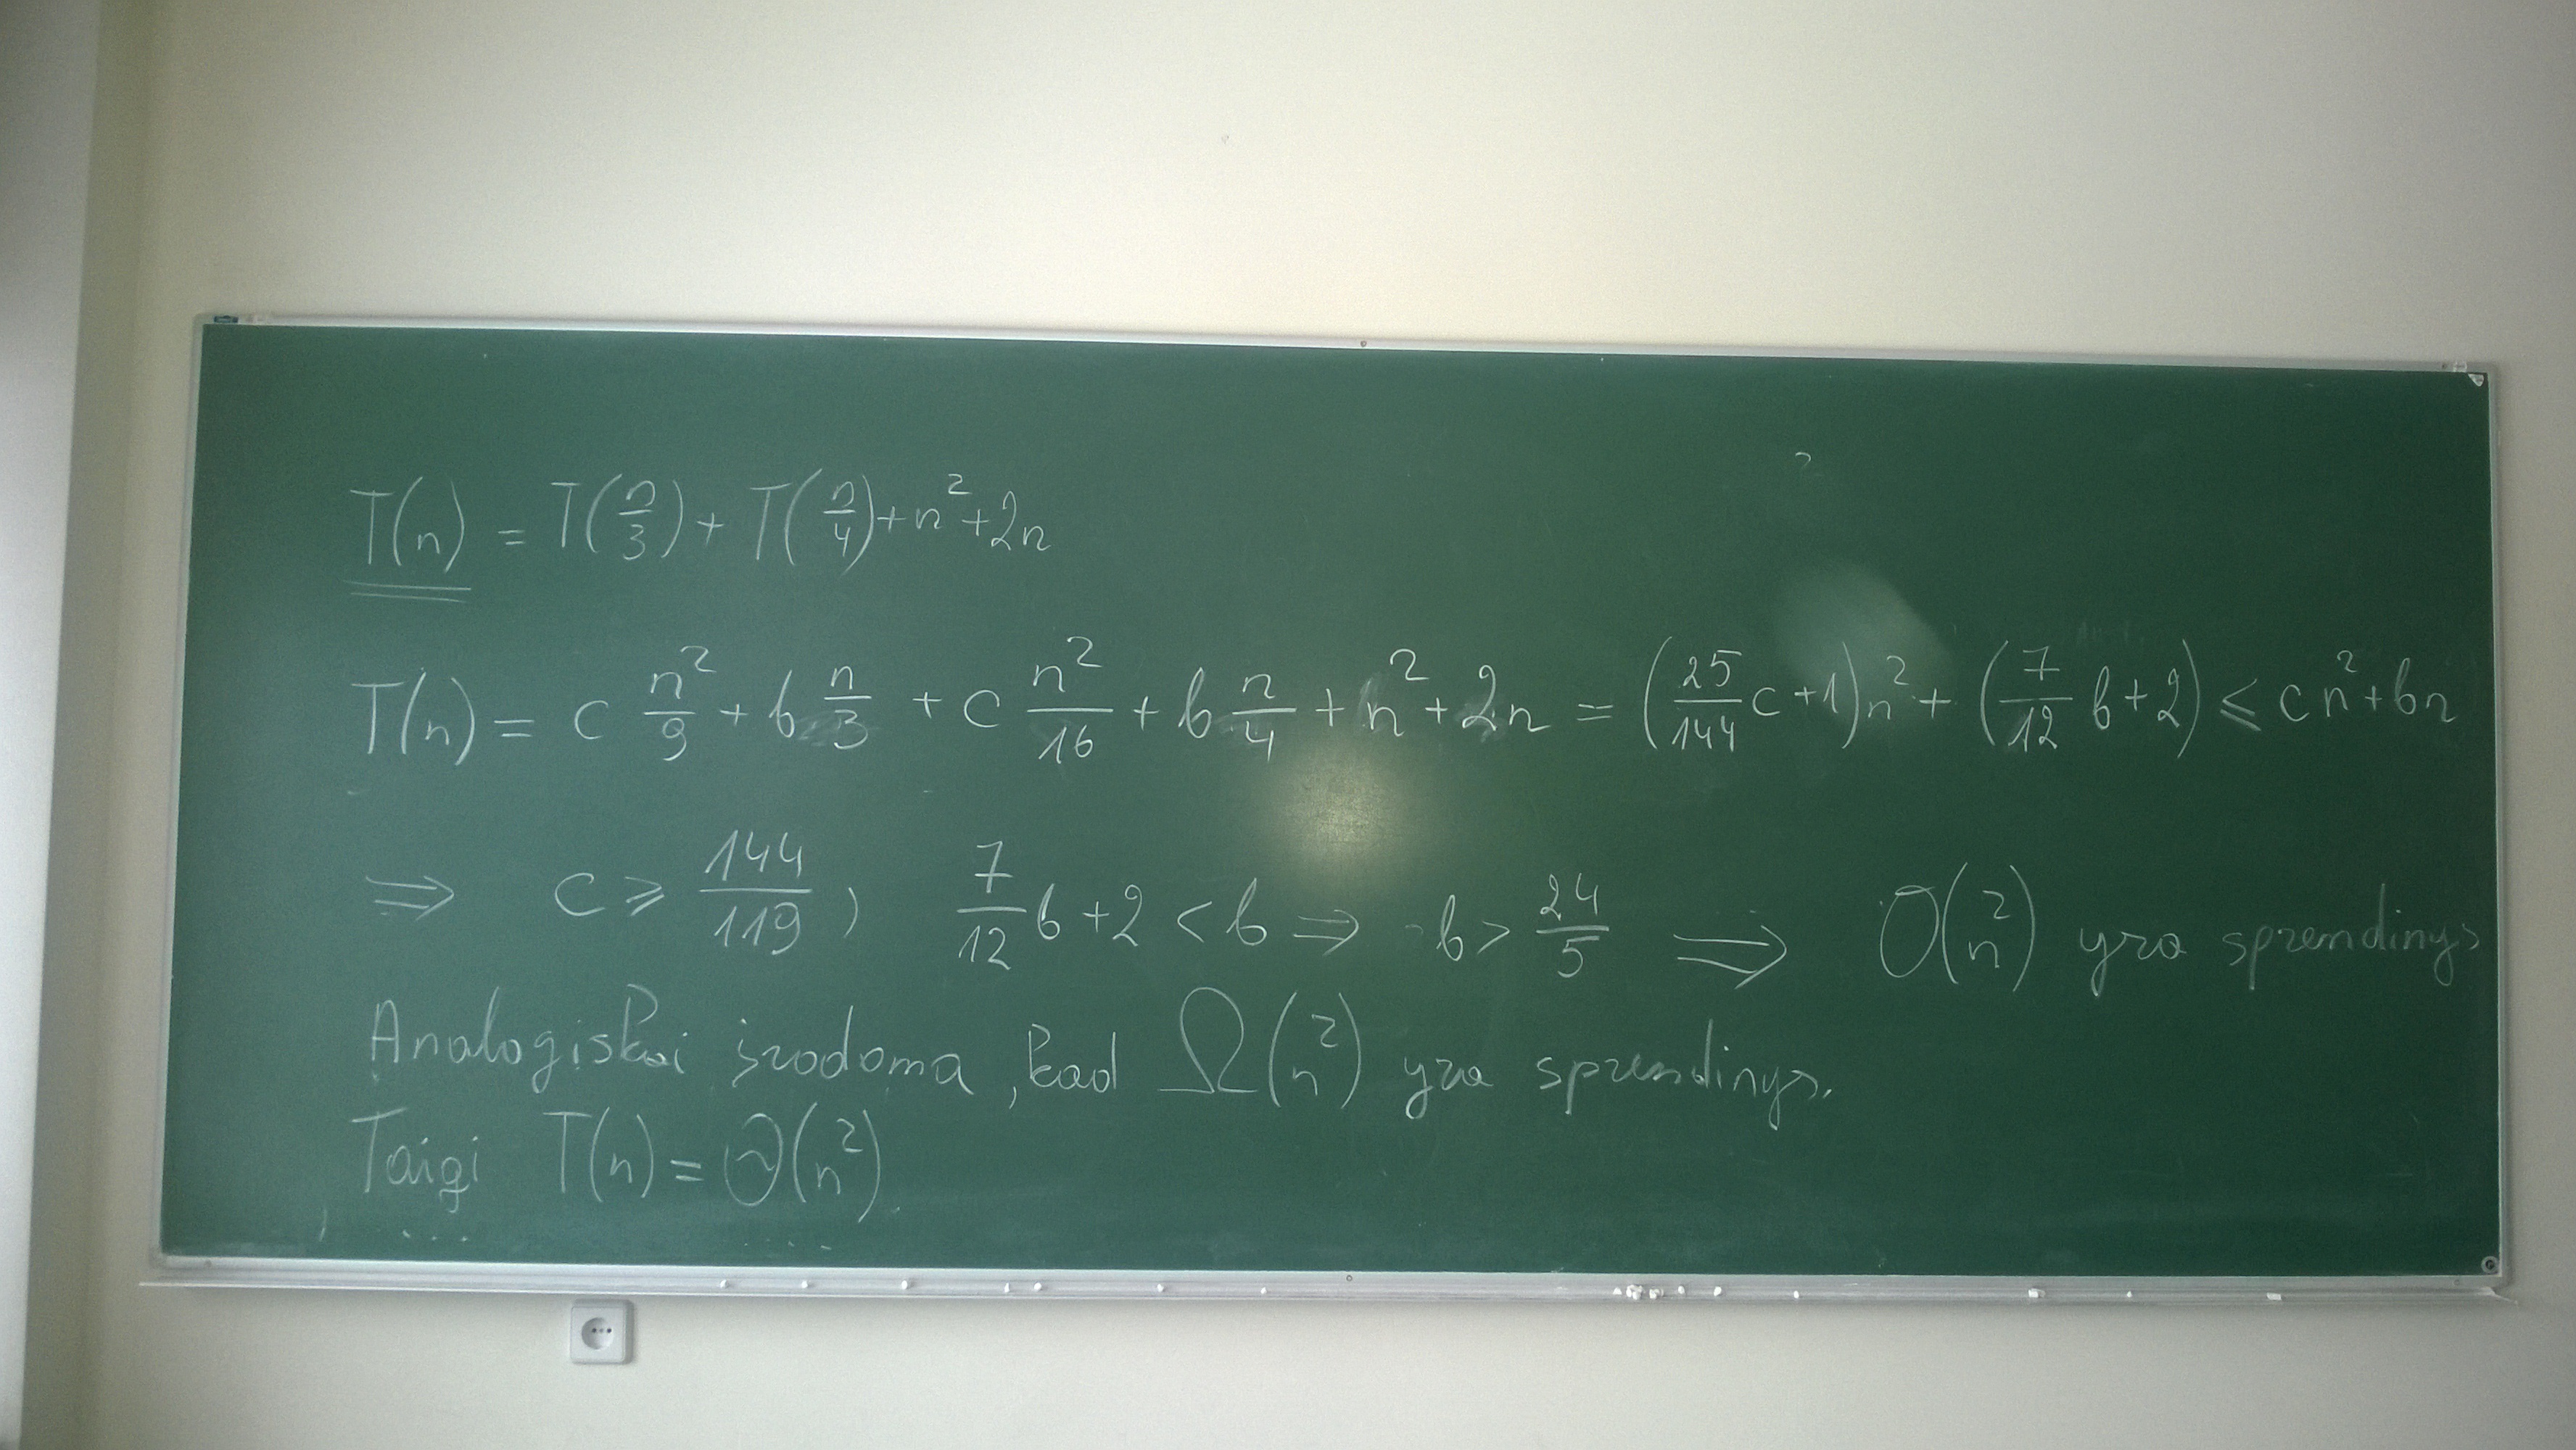 T(n) = T(n/3) + T(n/4) + n² + 2n
T(n) = c n²/9 + b n/3 + c n²/16 + b n/4 + n² + 2n = (25/144 c + 1)n² + (7/12 b + 2) ≤ cn² + bn
⇒ c ≥ 144/119, 7/12 b + 2 < b ⇒ b > 24/5 ⇒ O(n²) yra sprendinys
Analogiškai įrodoma, kad Ω(n²) yra sprendinys.
Taigi T(n) = Θ(n²).